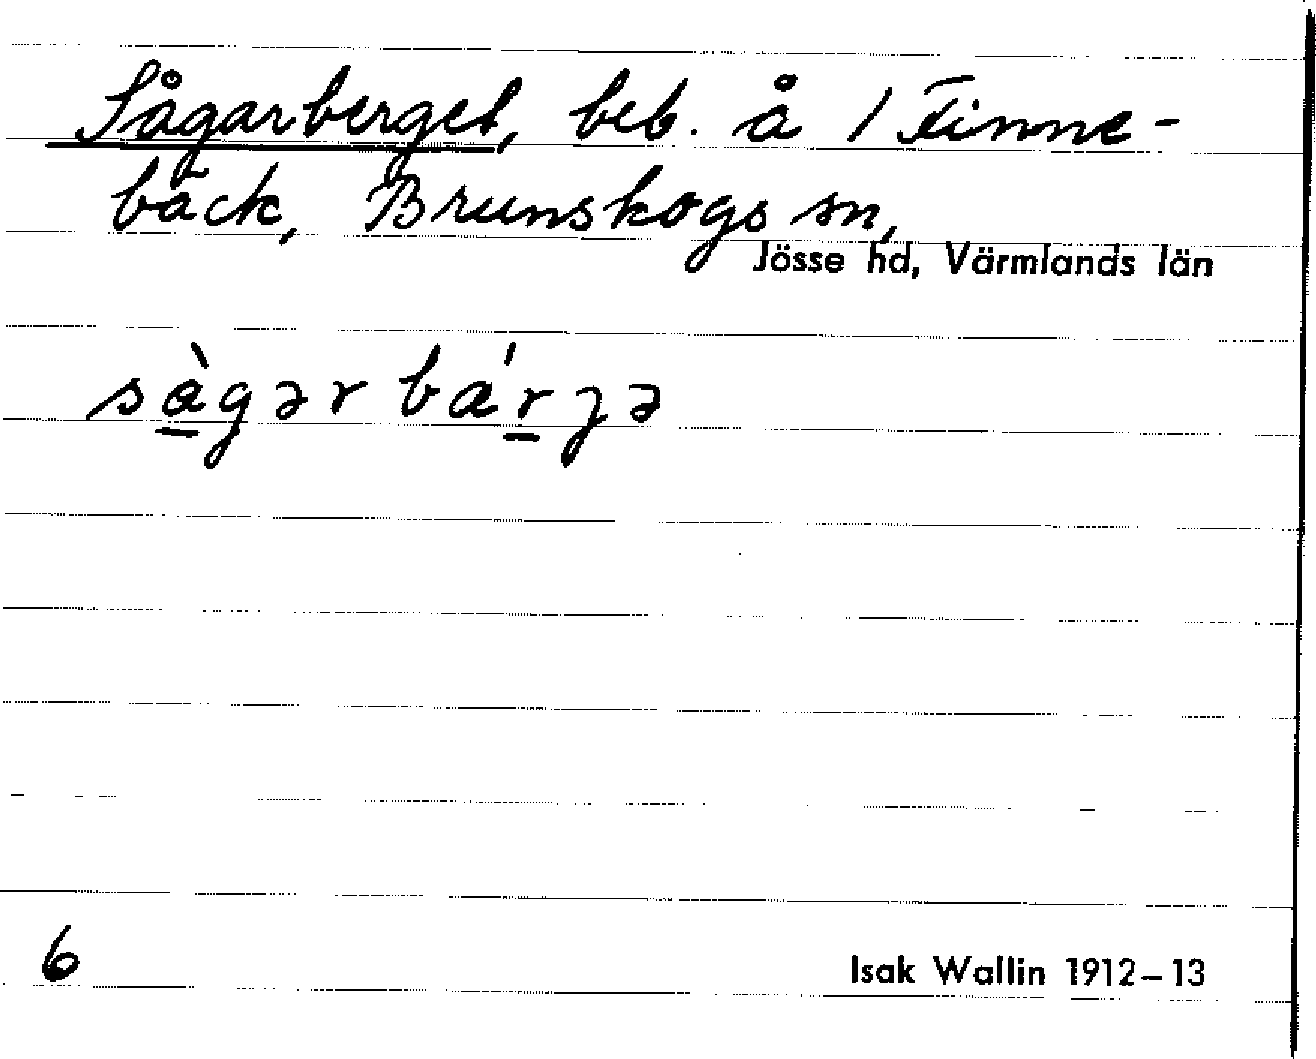 Sågarberget, beb. å 1 Finne-
bäck, Brunskogs sn,
Jösse hd, Värmlands län
sàgər bǽrɟə
6
Isak Wallin 1912–13